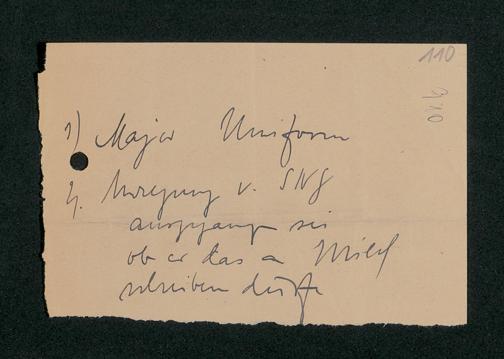 110
1) Major Uniform
2). Anregung v. SNG
ausgegangen sei
ob er das an Milch
schreiben dürfe